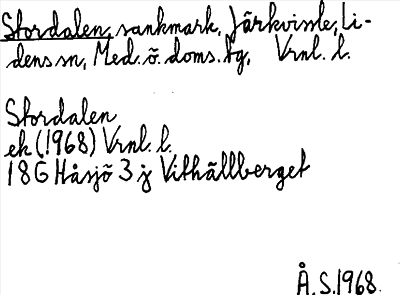 Stordalen, sankmark, Järkvissle, Li-
dens sn, Med. ö. doms. tg, Vrnl. l.
Stordalen
ek (1968) Vrnl. l.
18G Håsjö 3 j Vithällberget
Å. S. 1968.